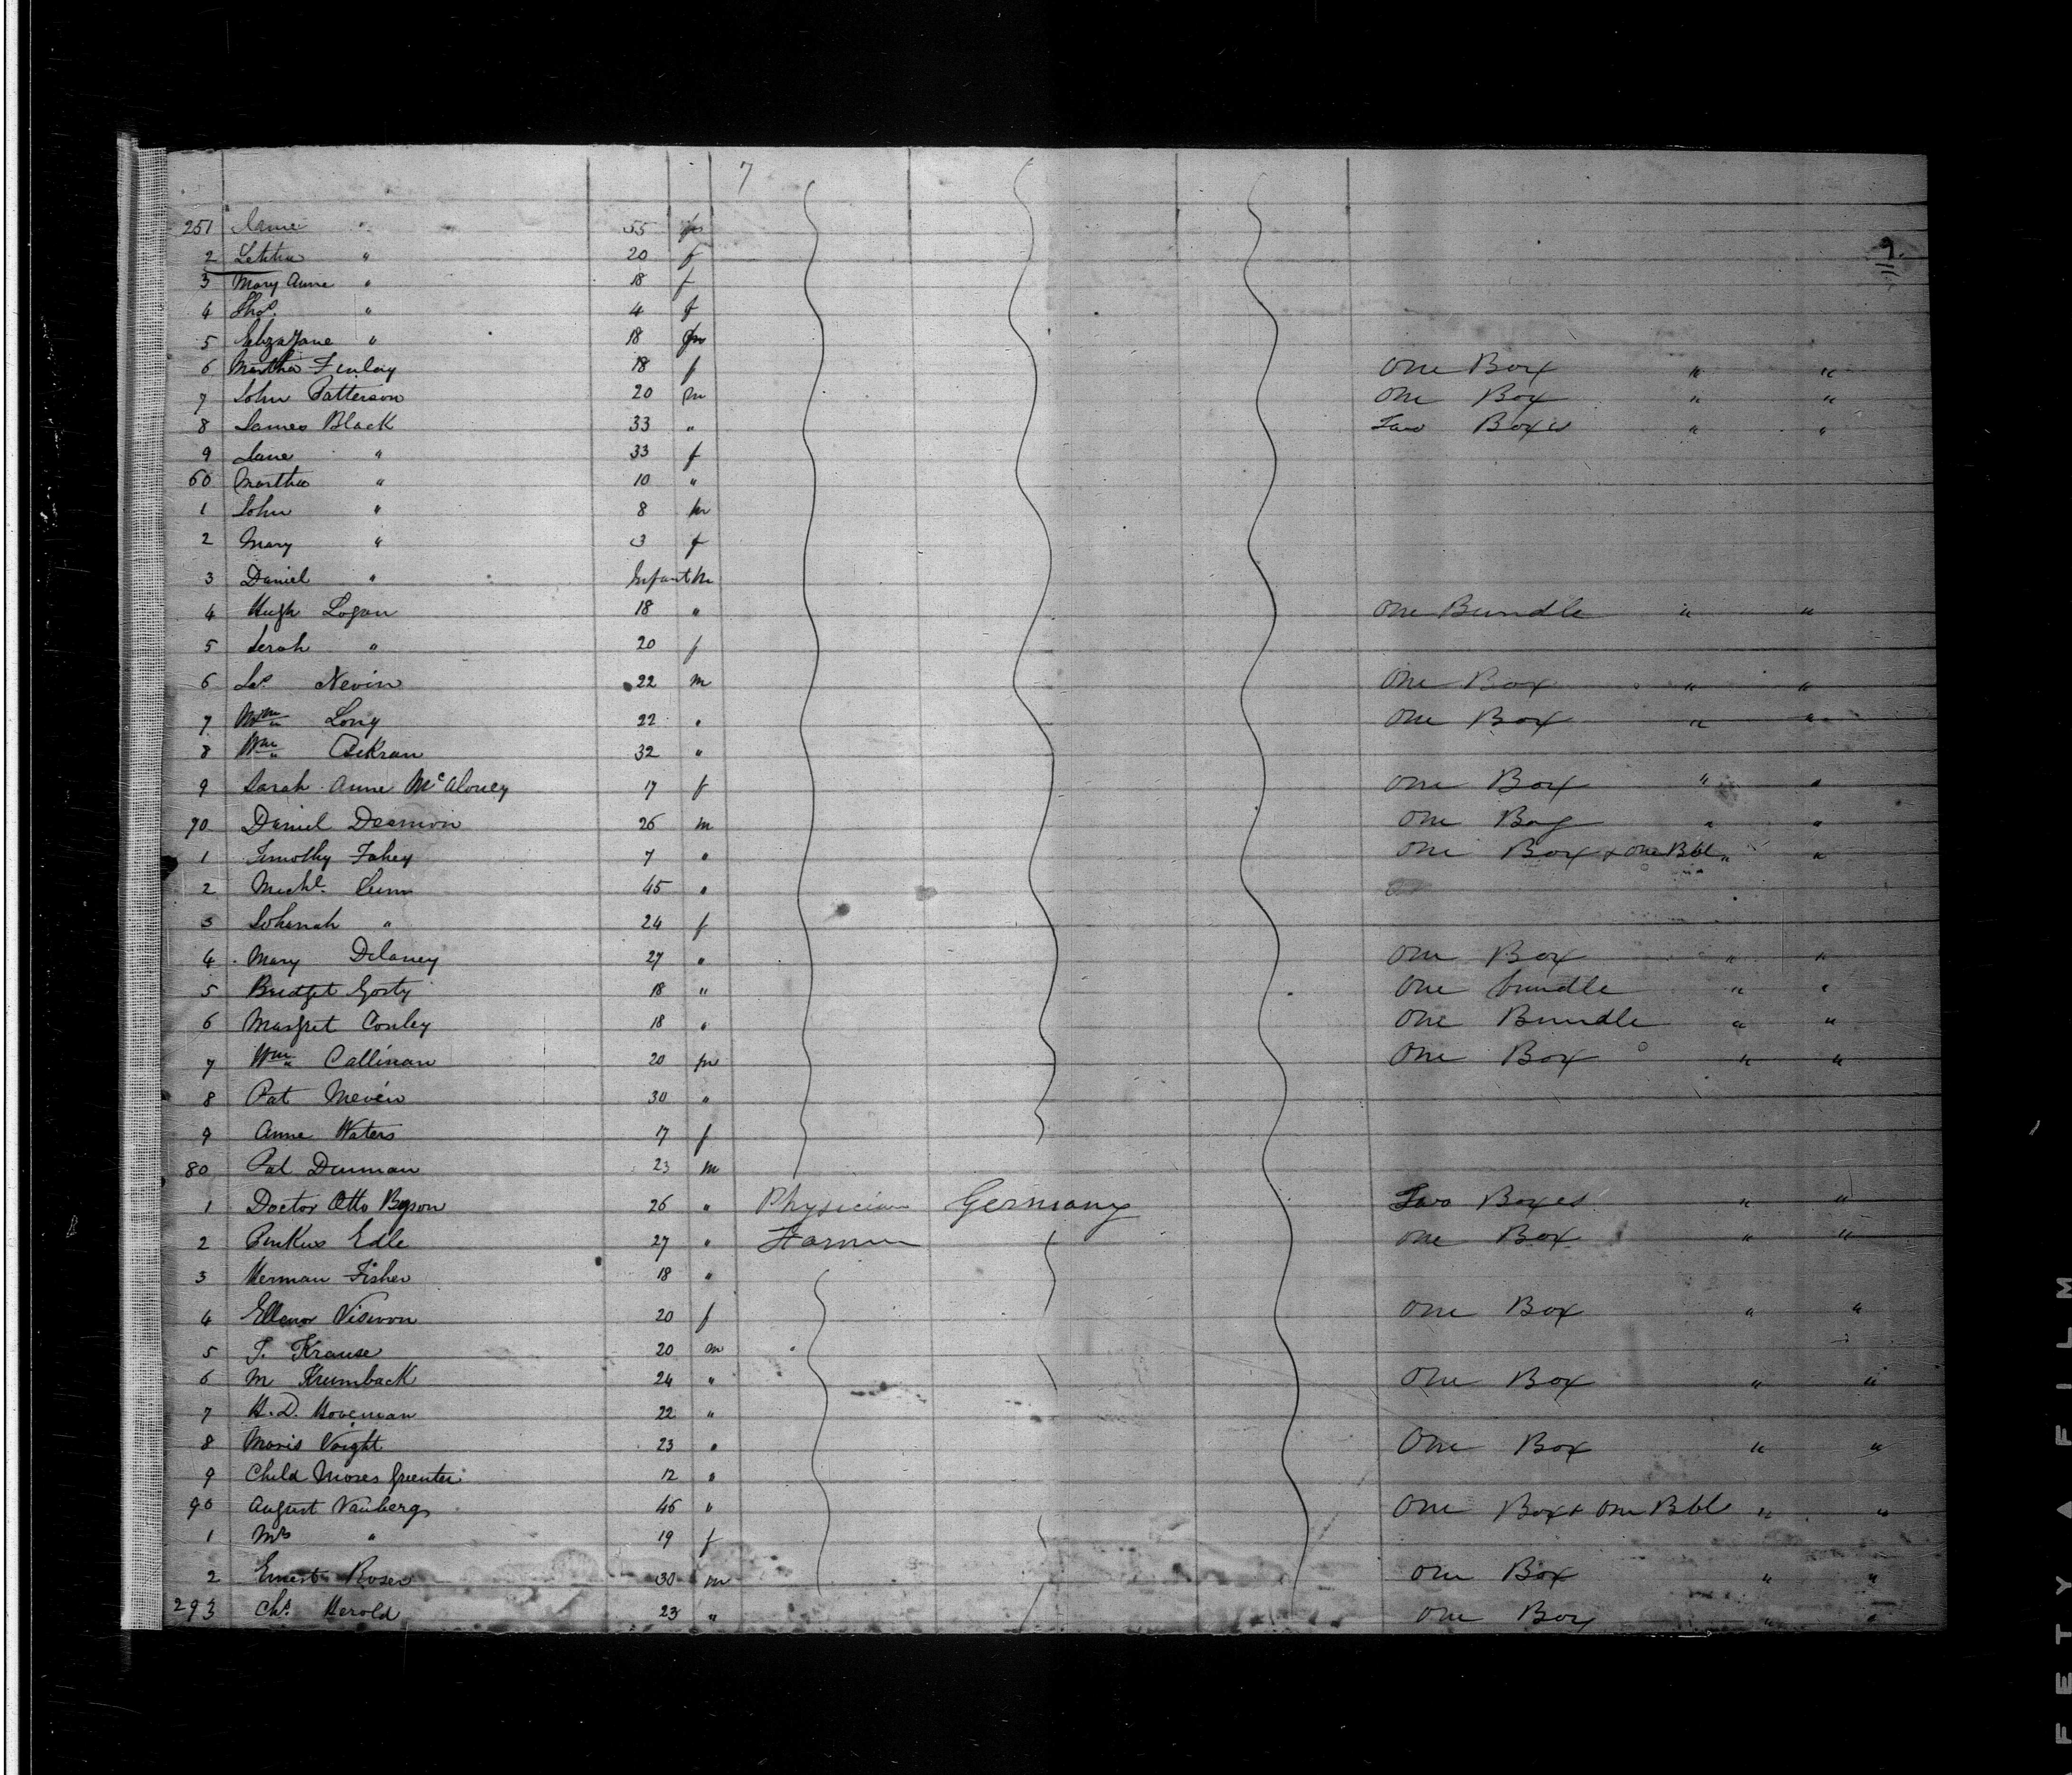 7
9.
251 Jane " 55 f
2 Letitia " 20 f
3 Mary Anne " 18 f
4 Thos. " 4
5 Eliza Jane " 18
6 Martha Finlay 18 f One Box " "
7 John Patterson 20 m One Box " "
8 James Black 33 " Two Boxes " "
9 Jane " 33 f
60 Martha " 10 "
1 John " 8 m
2 Mary " 3 f
3 Daniel " Infant m
4 Hugh Logan 18 " One Bundle " "
5 Serah " 20 f
6 Nevin 22 m One Box " "
7 Wm Long 22 " One Box " "
8 Wm 32 "
9 Sarah Anne McAloney 17 f One Box " "
70 Daniel 26 m One Bag " "
1 Timothy Fahey 7 " One Box + One Bbl " "
2 Michl. 45 "
3 Johanah " 24 f
4 Mary Delaney 27 " One Box " "
5 Bridget Gorty 18 " One bundle " "
6 Margret Conley 18 " One Bundle " "
7 Wm Callinan 20 m One Box " "
8 Pat Neven 30 "
9 Anne Waters 17 f
80 Pat 23 m
1 Doctor Otto 26 " Physician Germany Two Boxes " "
2 Edle 27 " Farmer One Box " "
3 Herman Fisher 18 "
4 Ellenor 20 f One Box " "
5 T. Krause 20 m
6 M Krumback 24 " One Box " "
7 H. D. Hoveman 22 "
8 Moris Voight 23 " One Box " "
9 Child Moses 12 "
90 August Vanberg 45 " One Box + One Bbl " "
1 Mrs " 19 f
2 Ernest Roser 30 m One Box " "
293 Chs. Herold 23 " One Box " "
FETY FILM